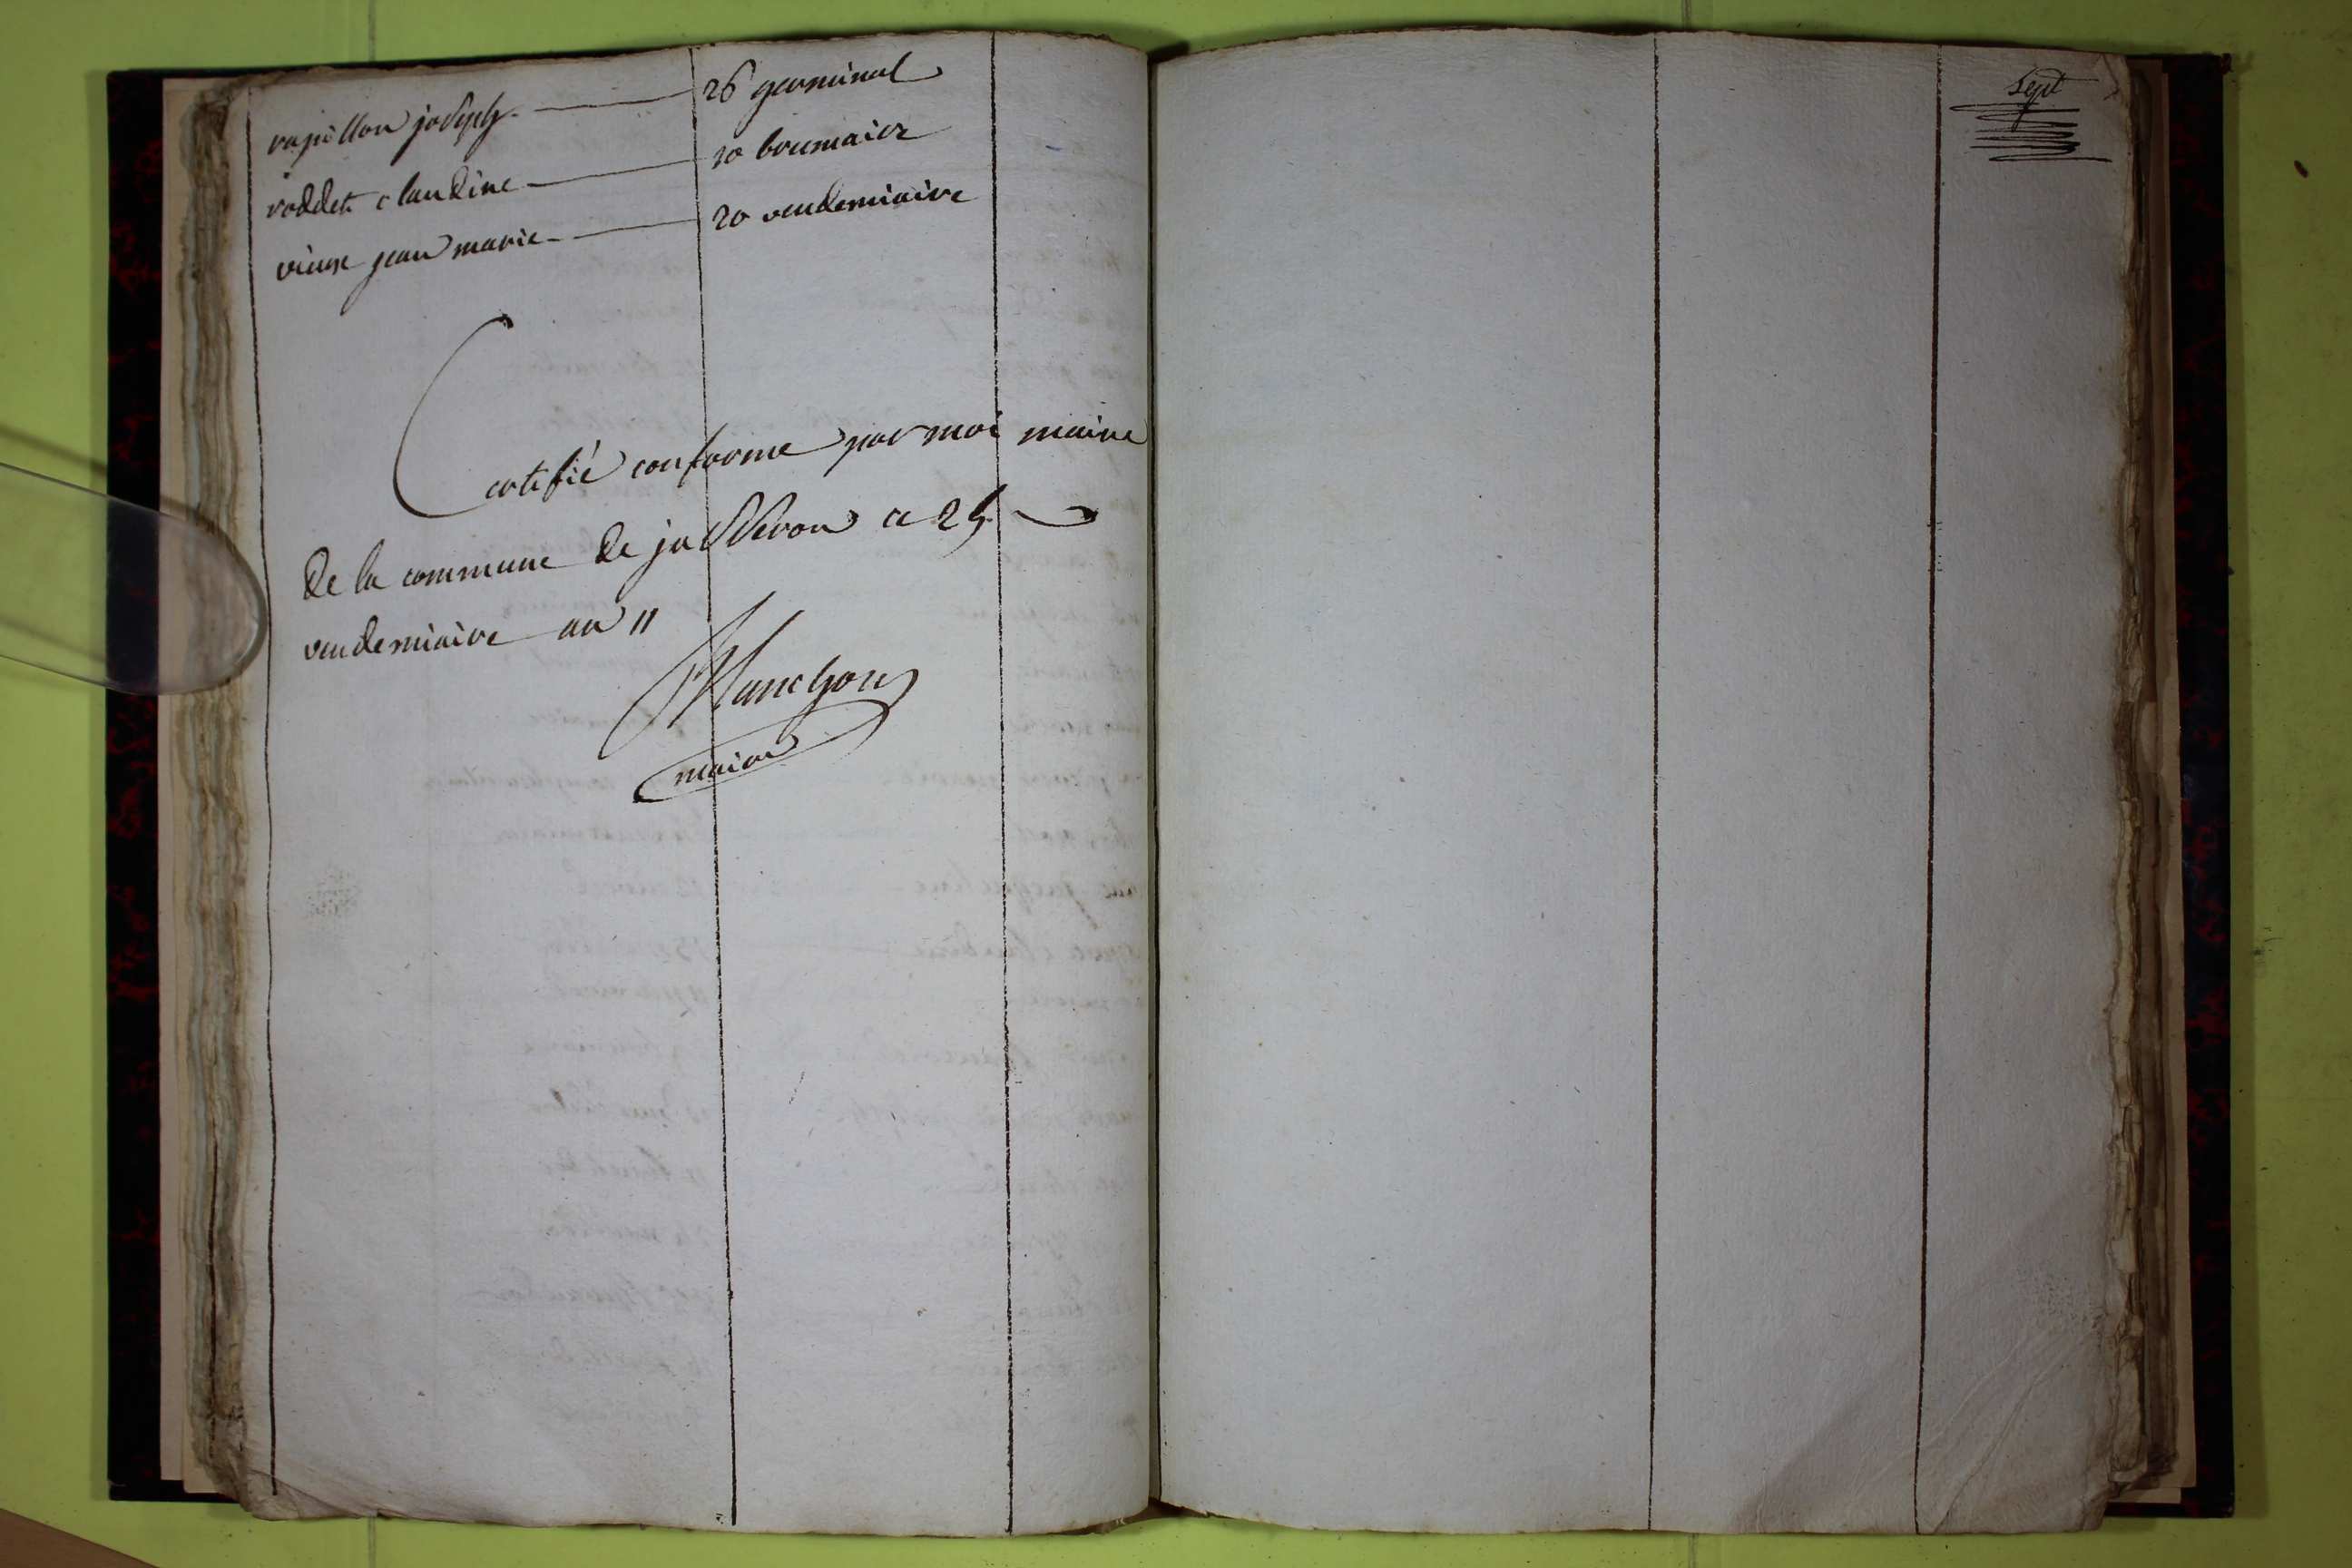 rapillon joseph 26 germinal
roddet claudine 10 brumaire
vieux jean marie 20 vendemiaire
Certifié conforme par moi maire
de la commune de jasseron ce 25
vendemiaire an 11
Planchon
maire
sept